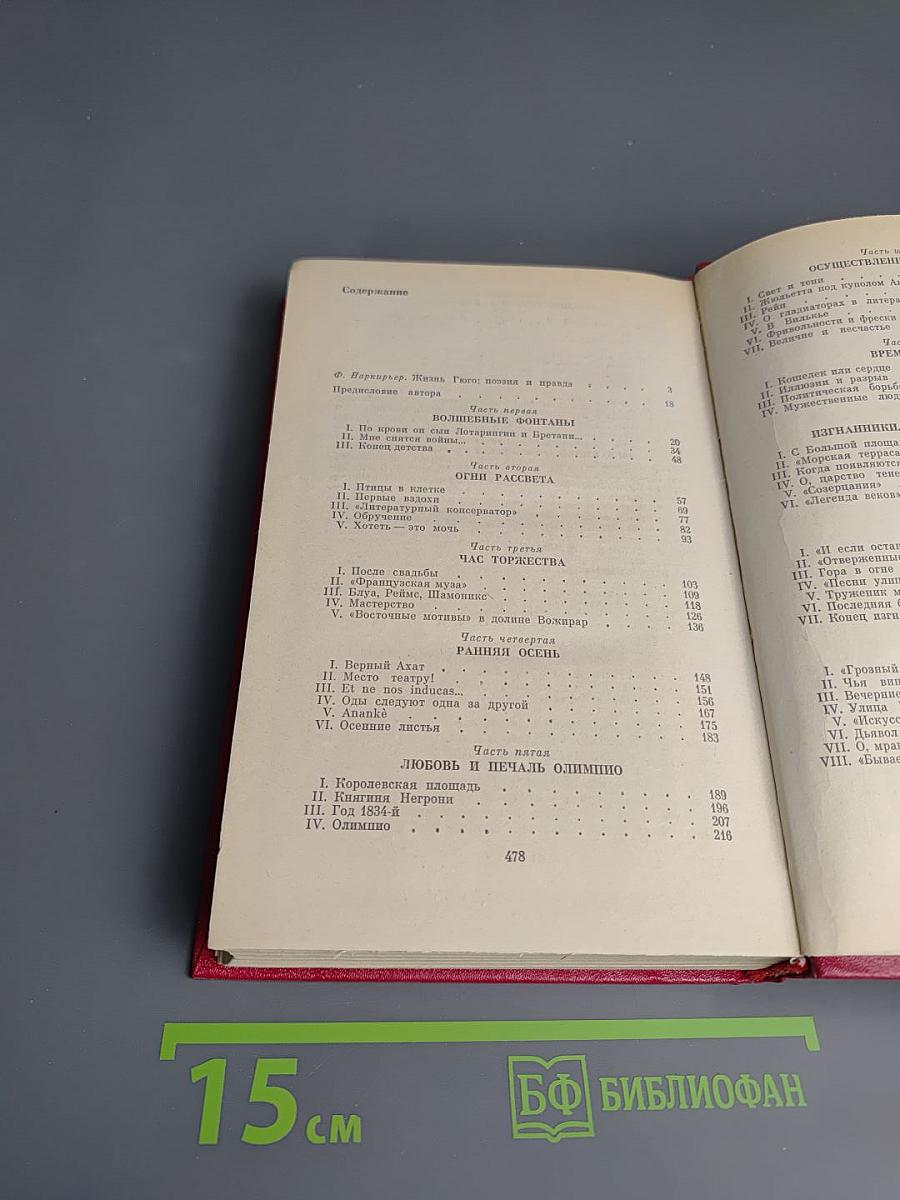 Содержание
Ф. Наркирьер. Жизнь Гюго: поэзия и правда . . . . 3
Предисловие автора . . . . . . . . . . 18
Часть первая
ВОЛШЕБНЫЕ ФОНТАНЫ
I. По крови он сын Лотарингии и Бретани... . . . . 20
II. Мне снятся войны... . . . . . . . . . 34
III. Конец детства . . . . . . . . . . 48
Часть вторая
ОГНИ РАССВЕТА
I. Птицы в клетке . . . . . . . . . . 57
II. Первые вздохи . . . . . . . . . . 69
III. «Литературный консерватор» . . . . . . . 77
IV. Обручение . . . . . . . . . . . 82
V. Хотеть — это мочь . . . . . . . . . 93
Часть третья
ЧАС ТОРЖЕСТВА
I. После свадьбы . . . . . . . . . . 103
II. «Французская муза» . . . . . . . . . 109
III. Блуа, Реймс, Шамоникс . . . . . . . . 118
IV. Мастерство . . . . . . . . . . . 126
V. «Восточные мотивы» в долине Вожирар . . . . 136
Часть четвертая
РАННЯЯ ОСЕНЬ
I. Верный Ахат . . . . . . . . . . . 148
II. Место театру! . . . . . . . . . . 151
III. Et ne nos inducas... . . . . . . . . . 156
IV. Оды следуют одна за другой . . . . . . . 167
V. Anankè . . . . . . . . . . . . 175
VI. Осенние листья . . . . . . . . . . 183
Часть пятая
ЛЮБОВЬ И ПЕЧАЛЬ ОЛИМПИО
I. Королевская площадь . . . . . . . . . 189
II. Княгиня Негрони . . . . . . . . . . 196
III. Год 1834-й . . . . . . . . . . . 207
IV. Олимпио . . . . . . . . . . . . 216
478
Часть
ОСУЩЕСТВЛЕНИ
I. Свет и тени . . . .
II. Жюльетта под куполом
III. Рейн . . . .
IV. О гладиаторах в литера
V. В Вилькье . . .
VI. Фривольности и фрески
VII. Величие и несчастье
Час
ВРЕМ
I. Кошелек или сердце
II. Иллюзии и разрыв
III. Политическая борьб
IV. Мужественные люд
ИЗГНАННИКИ
I. С Большой площад
II. «Морская терраса
III. Когда появляются
IV. О, царство тене
V. «Созерцания»
VI. «Легенда веков»
I. «И если остав
II. «Отверженные
III. Гора в огне
IV. «Песни улиц
V. Труженик м
VI. Последняя б
VII. Конец изгн
I. «Грозный
II. Чья вин
III. Вечерние
IV. Улица
V. «Искусс
VI. Дьявол
VII. О, мра
VIII. «Бывае
15 см
БФ БИБЛИОФАН